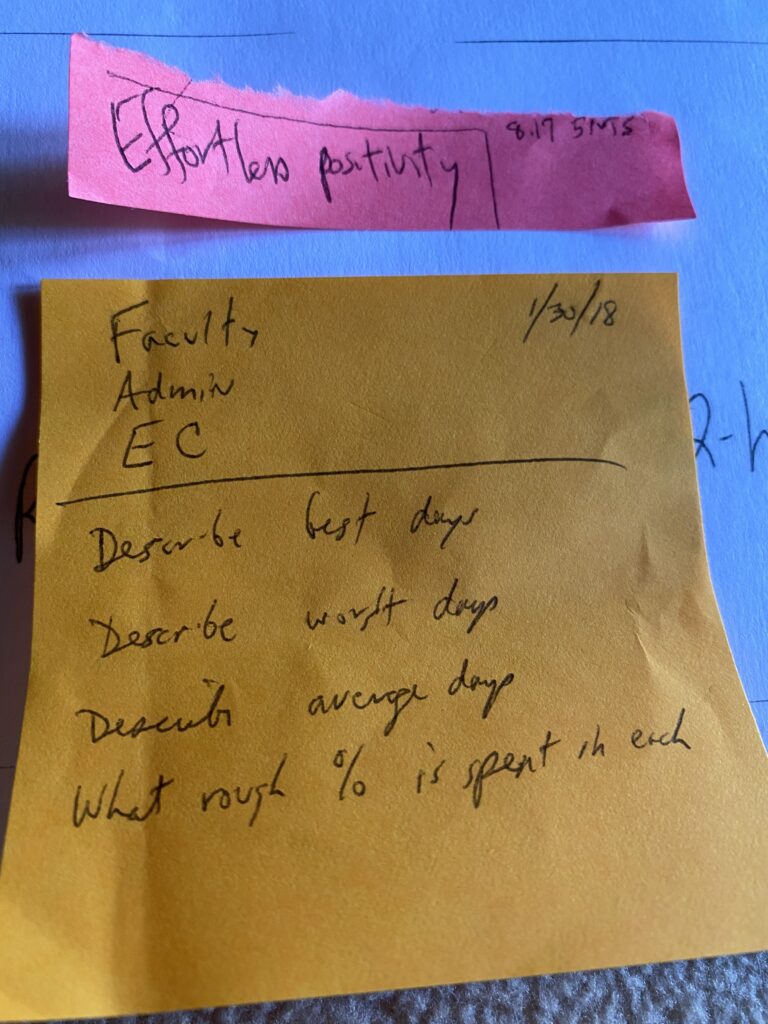 Effortless positivity
8.17 5MTS
Faculty
1/30/18
Admin
EC
Describe best days
Describe worst days
Describe average days
What rough % is spent in each
2-h